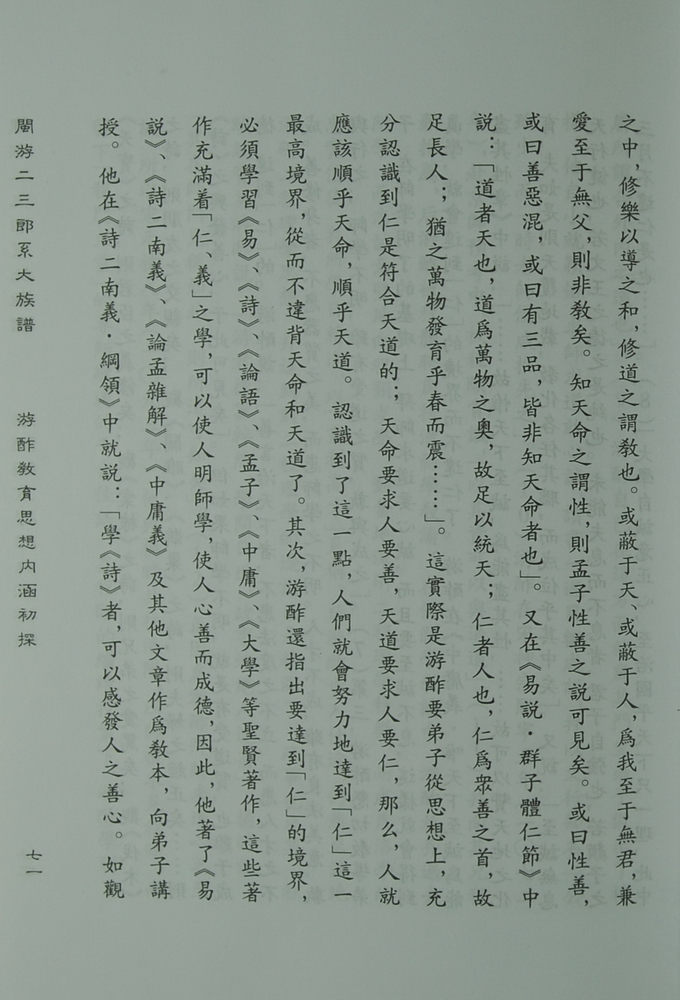 之中，修樂以導之和，修道之謂教也。或蔽于天、或蔽于人，爲我至于無君，兼
愛至于無父，則非教矣。知天命之謂性，則孟子性善之説可見矣。或曰性善，
或曰善惡混，或曰有三品，皆非知天命者也」。又在《易説·群子體仁節》中
説：「道者天也，道爲萬物之奥，故足以統天；仁者人也，仁爲衆善之首，故
足長人；猶之萬物發育乎春而震……」。這實際是游酢要弟子從思想上，充
分認識到仁是符合天道的；天命要求人要善，天道要求人要仁，那么，人就
應該順乎天命，順乎天道。認識到了這一點，人們就會努力地達到「仁」這一
最高境界，從而不違背天命和天道了。其次，游酢還指出要達到「仁」的境界，
必須學習《易》、《詩》、《論語》、《孟子》、《中庸》、《大學》等聖賢著作，這些著
作充滿着「仁、義」之學，可以使人明師學，使人心善而成德，因此，他著了《易
説》、《詩二南義》、《論孟雜解》、《中庸義》及其他文章作爲教本，向弟子講
授。他在《詩二南義·綱領》中就説：「學《詩》者，可以感發人之善心。如觀
閩游二三郎系大族譜
游酢教育思想内涵初探
七一